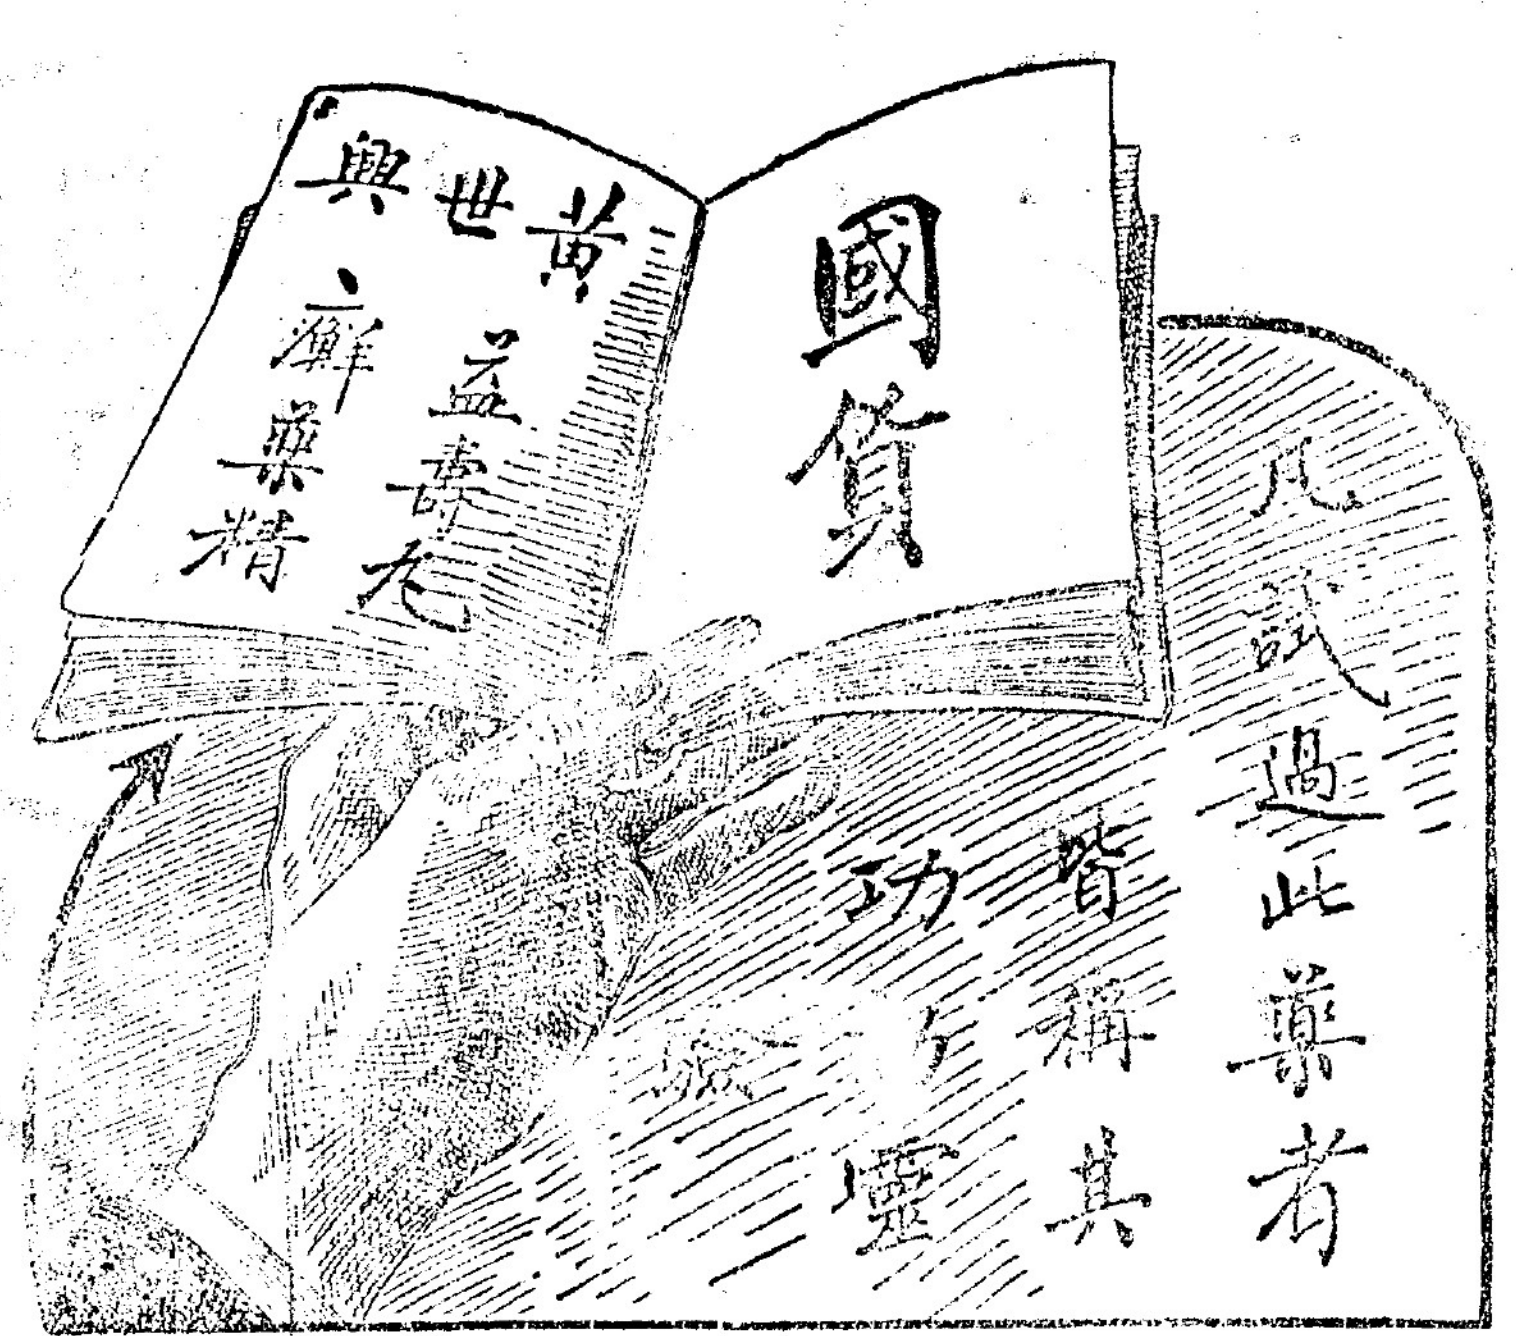 國貨
黃世興
益壽丸
癬藥精
凡試過此藥者
皆稱其
功靈